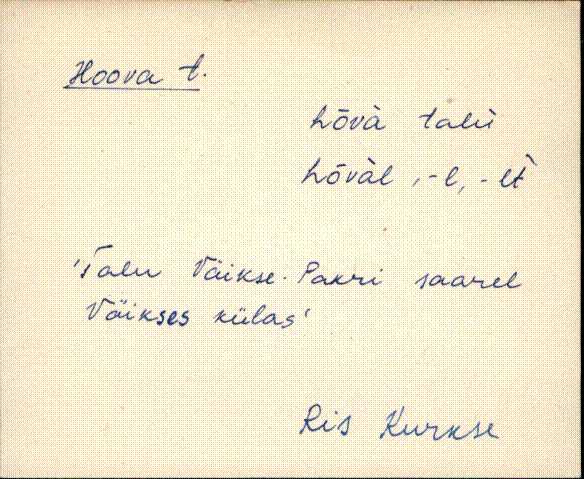 Hoova t.
hōvà talù
hōvàl, -l, -lt
'Talu Väikse-Pakri saarel
Väikses külas'
Ris Kurkse